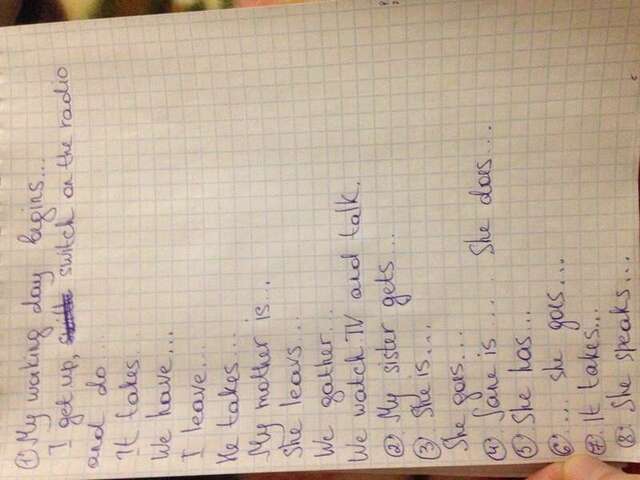 ① My waking day begins...
I get up, switch on the radio
and do...
It takes
We have...
I leave...
He takes...
My mother is...
She leavs...
We gather...
We watch TV and talk.
② My sister gets...
③ She is...
She goes...
④ Jane is.... She does...
⑤ She has...
⑥ ... she goes...
⑦ It takes...
⑧ She speaks...